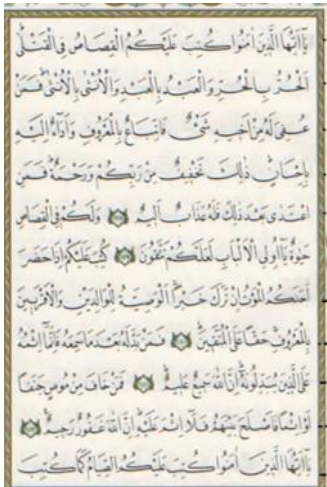 يَٓا اَيُّهَا الَّذ۪ينَ اٰمَنُوا كُتِبَ عَلَيْكُمُ الْقِصَاصُ فِي الْقَتْلٰىۜ
اَلْحُرُّ بِالْحُرِّ وَالْعَبْدُ بِالْعَبْدِ وَالْاُنْثٰى بِالْاُنْثٰىۜ فَمَنْ
عُفِيَ لَهُ مِنْ اَخ۪يهِ شَيْءٌ فَاتِّبَاعٌ بِالْمَعْرُوفِ وَاَدَٓاءٌ اِلَيْهِ
بِاِحْسَانٍۜ ذٰلِكَ تَخْف۪يفٌ مِنْ رَبِّكُمْ وَرَحْمَةٌۜ فَمَنِ
اعْتَدٰى بَعْدَ ذٰلِكَ فَلَهُ عَذَابٌ اَل۪يمٌ وَلَكُمْ فِي الْقِصَاصِ
حَيٰوةٌ يَٓا اُو۬لِي الْاَلْبَابِ لَعَلَّكُمْ تَتَّقُونَ كُتِبَ عَلَيْكُمْ اِذَا حَضَرَ
اَحَدَكُمُ الْمَوْتُ اِنْ تَرَكَ خَيْرًاۚ اَلْوَصِيَّةُ لِلْوَالِدَيْنِ وَالْاَقْرَب۪ينَ
بِالْمَعْرُوفِۚ حَقًّا عَلَى الْمُتَّق۪ينَۜ فَمَنْ بَدَّلَهُ بَعْدَ مَا سَمِعَهُ فَاِنَّمَٓا اِثْمُهُ
عَلَى الَّذ۪ينَ يُبَدِّلُونَهُۜ اِنَّ اللّٰهَ سَم۪يعٌ عَل۪يمٌۜ فَمَنْ خَافَ مِنْ مُوصٍ جَنَفًا
اَوْ اِثْمًا فَاَصْلَحَ بَيْنَهُمْ فَلَٓا اِثْمَ عَلَيْهِۜ اِنَّ اللّٰهَ غَفُورٌ رَح۪يمٌ
يَٓا اَيُّهَا الَّذ۪ينَ اٰمَنُوا كُتِبَ عَلَيْكُمُ الصِّيَامُ كَمَا كُتِبَ